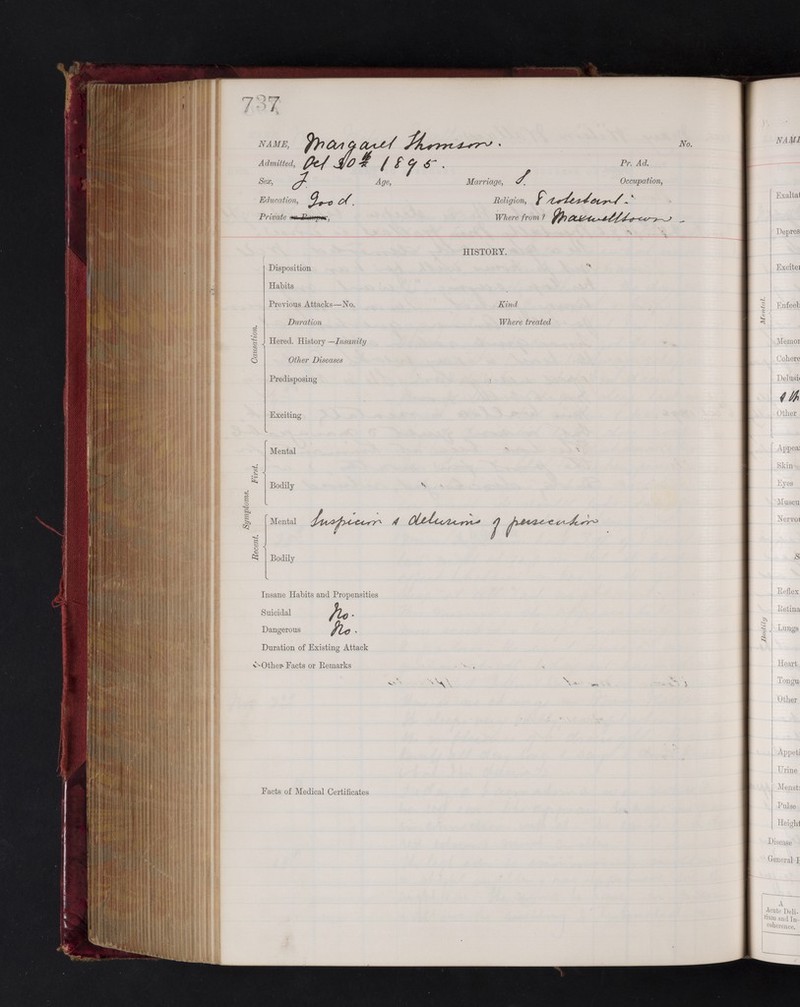 737
NAME, Margaret Thomson. No.
Admitted, Oct 30th 1895. Pr. Ad.
Sex, F Age, Marriage, S. Occupation,
Education, Good. Religion, Protestant.
Private or Pauper, Where from? Maxwelltown
HISTORY.
Causation.
Disposition
Habits
Previous Attacks—No. Kind
Duration Where treated
Hered. History—Insanity
Other Diseases
Predisposing
Exciting
Symptoms.
First.
Mental
Bodily
Recent.
Mental Suspicion & delusions of persecution
Bodily
Insane Habits and Propensities
Suicidal No.
Dangerous No.
Duration of Existing Attack
Other Facts or Remarks
Facts of Medical Certificates
NAME
Mental.
Exaltat
Depres
Excite
Enfeeb
Memor
Cohere
Delusi
Other
Appea
Skin
Eyes
Muscu
Nervou
Bodily
Reflex
Retina
Lungs
Heart
Tongu
Other
Appeti
Urine
Menst
Pulse
Height
Disease
General
A
Acute Deli-
rium and In-
coherence.